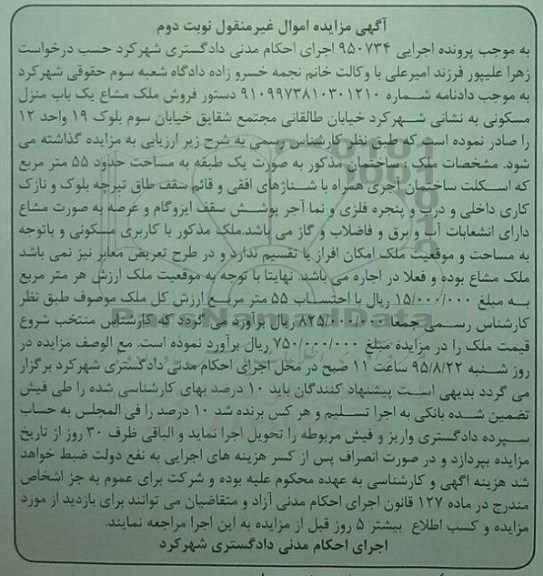 آگهی مزایده اموال غیرمنقول نوبت دوم
به موجب پرونده اجرایی ۹۵۰۷۳۴ اجرای احکام مدنی دادگستری شهرکرد حسب درخواست
زهرا علیپور فرزند امیرعلی با وکالت خانم نجمه خسرو زاده دادگاه شعبه سوم حقوقی شهرکرد
به موجب دادنامه شماره ۹۱۰۹۹۷۳۸۱۰۳۰۱۲۱۰ دستور فروش ملک مشاع یک باب منزل
مسکونی به نشانی شهرکرد خیابان طالقانی مجتمع شقایق خیابان سوم بلوک ۱۹ واحد ۱۲
را صادر نموده است که طبق نظر کارشناس رسمی به شرح زیر ارزیابی به مزایده گذاشته می
شود. مشخصات ملک: ساختمان مذکور به صورت یک طبقه به مساحت حدود ۵۵ متر مربع
که اسکلت ساختمان آجری همراه با شناژهای افقی و قائم سقف طاق تیرچه بلوک و نازک
کاری داخلی و درب و پنجره فلزی و نما آجر پوشش سقف ایزوگام و عرصه به صورت مشاع
دارای انشعابات آب و برق و فاضلاب و گاز می باشد.ملک مذکور با کاربری مسکونی و باتوجه
به مساحت و موقعیت ملک امکان افراز یا تقسیم ندارد و در طرح تعریض معابر نیز نمی باشد
ملک مشاع بوده و فعلا در اجاره می باشد. نهایتا با توجه به موقعیت ملک ارزش هر متر مربع
به مبلغ ۱۵/۰۰۰/۰۰۰ ریال با احتساب ۵۵ متر مربع ارزش کل ملک موصوف طبق نظر
کارشناس رسمی جمعا ۸۲۵/۰۰۰/۰۰۰ ریال برآورد می گردد که کارشناس منتخب شروع
قیمت ملک را در مزایده مبلغ ۷۵۰/۰۰۰/۰۰۰ ریال برآورد نموده است. مع الوصف مزایده در
روز شنبه ۹۵/۸/۲۲ ساعت ۱۱ صبح در محل اجرای احکام مدنی دادگستری شهرکرد برگزار
می گردد بدیهی است پیشنهاد کنندگان باید ۱۰ درصد بهای کارشناسی شده را طی فیش
تضمین شده بانکی به اجرا تسلیم و هر کس برنده شد ۱۰ درصد را فی المجلس به حساب
سپرده دادگستری واریز و فیش مربوطه را تحویل اجرا نماید و الباقی ظرف ۳۰ روز از تاریخ
مزایده بپردازد و در صورت انصراف پس از کسر هزینه های اجرایی به نفع دولت ضبط خواهد
شد هزینه اگهی و کارشناسی به عهده محکوم علیه بوده و شرکت برای عموم به جز اشخاص
مندرج در ماده ۱۲۷ قانون اجرای احکام مدنی آزاد و متقاضیان می توانند برای بازدید از مورد
مزایده و کسب اطلاع بیشتر ۵ روز قبل از مزایده به این اجرا مراجعه نمایند.
اجرای احکام مدنی دادگستری شهرکرد
ParsNamadData